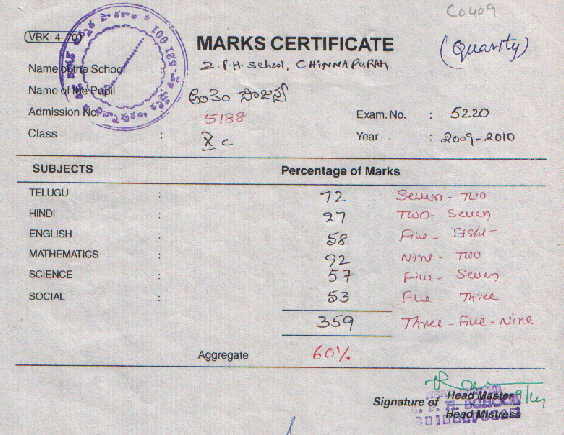 C0409
VRK-4
MARKS CERTIFICATE (Quarterly)
Name of the School Z.P.H. School, CHINNAPURAM
Name of the Pupil
Admission No. : 5188 Exam. No. : 5220
Class : X C Year : 2009-2010
SUBJECTS Percentage of Marks
TELUGU : 72 Seven - Two
HINDI : 27 Two - Seven
ENGLISH : 58 Five - Eight
MATHEMATICS : 92 Nine - Two
SCIENCE : 57 Five - Seven
SOCIAL : 53 Five Three
359 Three - Five - Nine
Aggregate 60%
Signature of Head Master
Head Mistress